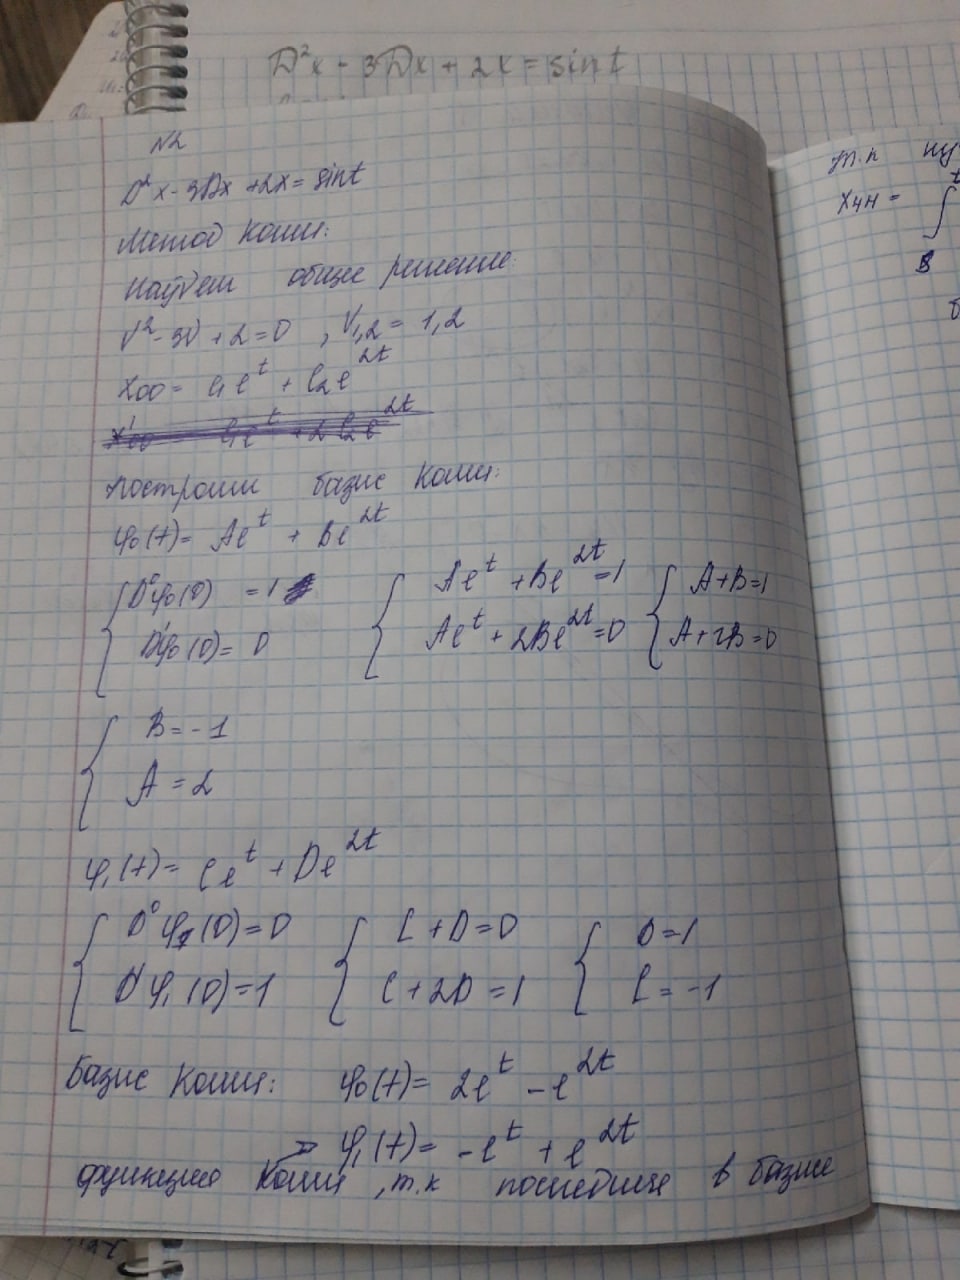 D²x - 3Dx + 2x = sint
N2
D²x - 3Dx + 2x = sint
Метод Коши:
Найдем общее решение:
ν² - 3ν + 2 = 0 , ν₁,₂ = 1, 2
Xоо = C₁e^t + C₂e^2t
X'оо = C₁e^t + 2C₂e^2t
Построим базис Коши:
φ₀(t) = Ae^t + Be^2t
{ D⁰φ₀(0) = 1 { Ae^t + Be^2t = 1 { A+B=1
D¹φ₀(0) = 0 Ae^t + 2Be^2t = 0 A+2B=0
{ B = -1
A = 2
φ₁(t) = Ce^t + De^2t
{ D⁰φ₁(0) = 0 { C + D = 0 { D = 1
D¹φ₁(0) = 1 C + 2D = 1 C = -1
Базис Коши: φ₀(t) = 2e^t - e^2t
φ₁(t) = -e^t + e^2t
функция Коши, т.к последняя в базисе
т.к
Xчн = ∫
t